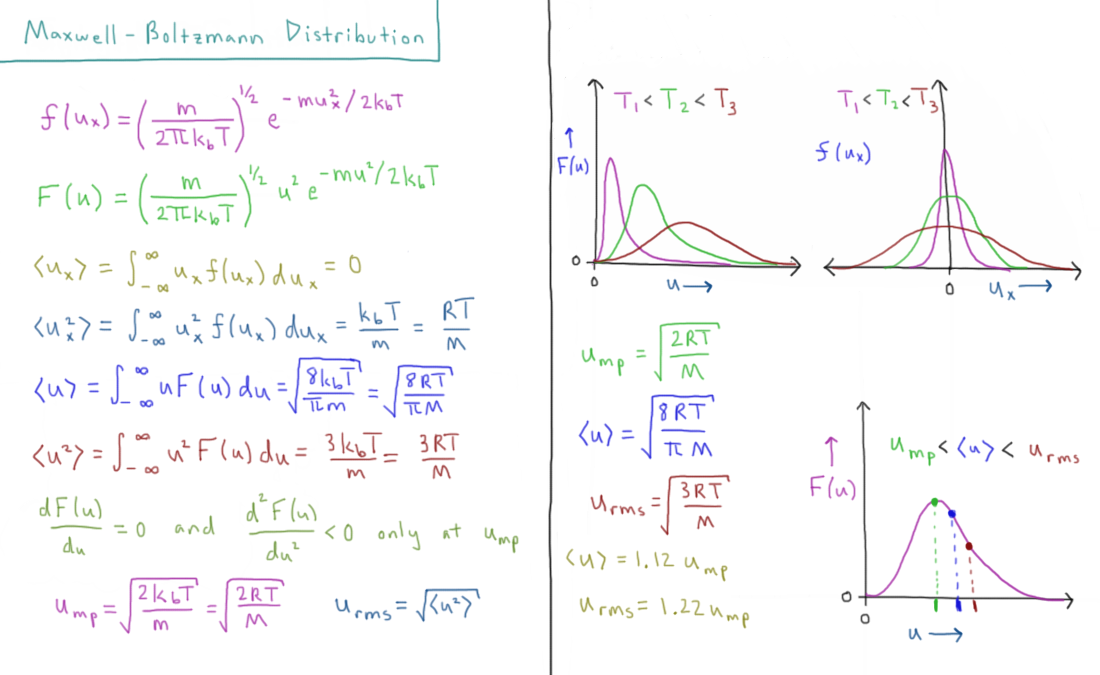 Maxwell-Boltzmann Distribution
f(uₓ) = (m / 2πk_bT)^1/2 e^-muₓ²/2k_bT
F(u) = (m / 2πk_bT)^1/2 u² e^-mu²/2k_bT
⟨uₓ⟩ = ∫_-∞^∞ uₓ f(uₓ) duₓ = 0
⟨uₓ²⟩ = ∫_-∞^∞ uₓ² f(uₓ) duₓ = k_bT/m = RT/M
⟨u⟩ = ∫_-∞^∞ uF(u) du = √(8k_bT/πm) = √(8RT/πM)
⟨u²⟩ = ∫_-∞^∞ u² F(u) du = 3k_bT/m = 3RT/M
dF(u)/du = 0 and d²F(u)/du² < 0 only at u_mp
u_mp = √(2k_bT/m) = √(2RT/M) u_rms = √⟨u²⟩
T₁ < T₂ < T₃
↑
F(u)
0
0
u →
T₁ < T₂ < T₃
f(uₓ)
0
uₓ →
u_mp = √(2RT/M)
⟨u⟩ = √(8RT/πM)
u_rms = √(3RT/M)
⟨u⟩ = 1.12 u_mp
u_rms = 1.22 u_mp
u_mp < ⟨u⟩ < u_rms
↑
F(u)
0
0
u →